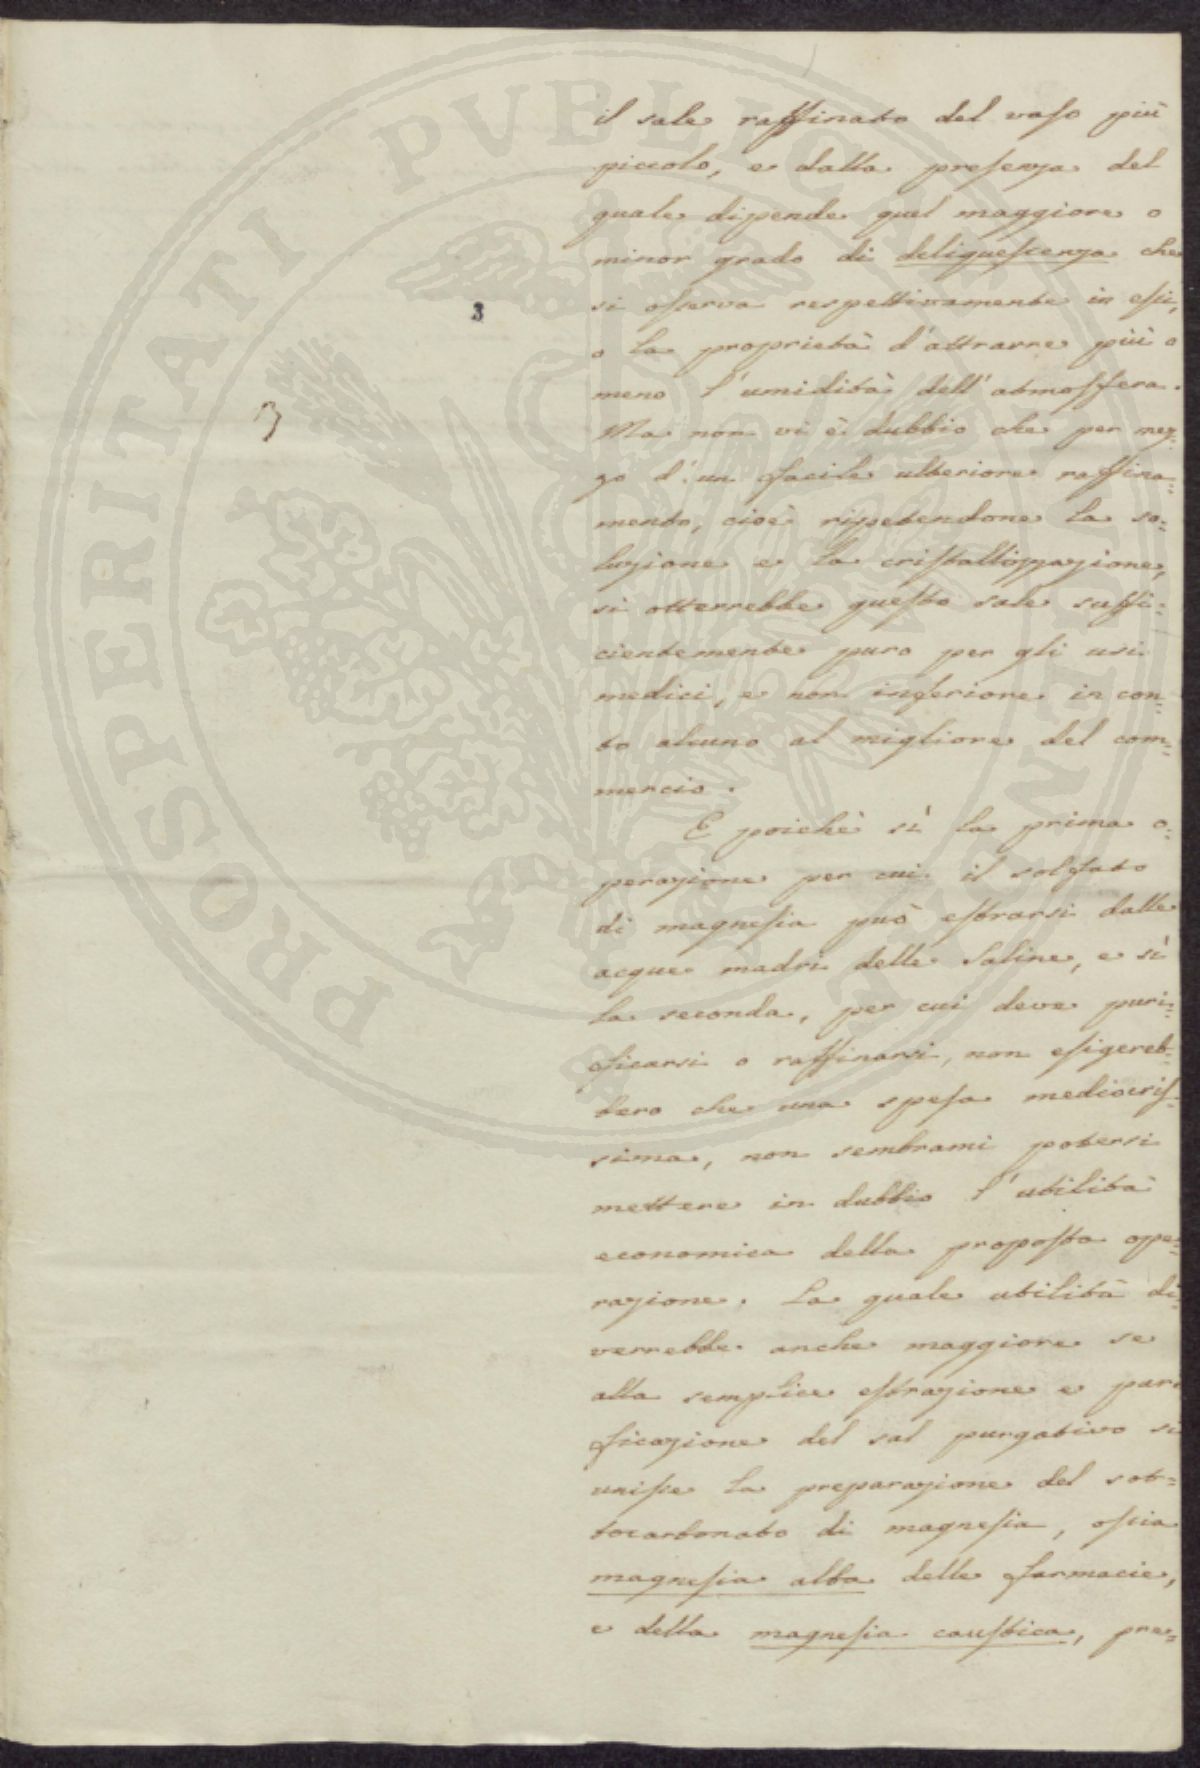 il sale raffinato del vaso più
piccolo, e dalla presenza del
quale dipende quel maggiore o
minor grado di deliquescenza che
si osserva respettivamente in essi,
3
o la proprietà d'attrarre più o
meno l'umidità dell'atmosfera.
3
Ma non vi è dubbio che per mez=
zo d'un facile ulteriore raffina=
mento, cioè ripetendone la so=
luzione e la cristallizzazione,
si otterrebbe questo sale suffi=
cientemente puro per gli usi
medici, e non inferiore in con=
to alcuno al migliore del com=
mercio.
E poichè sì la prima o=
perazione per cui il solfato
di magnesia può estrarsi dalle
acque madri delle Saline, e sì
la seconda, per cui deve puri=
ficarsi o raffinarsi, non esigereb=
bero che una spesa mediocris=
sima, non sembrami potersi
mettere in dubbio l'utilità
economica della proposta ope=
razione. La quale utilità di
verrebbe anche maggiore se
alla semplice estrazione e puri
ficazione del sal purgativo si
unisse la preparazione del sot=
tocarbonato di magnesia, ossia
magnesia alba delle farmacie,
e della magnesia caustica, pre=
PROSPERITATI PVBLICAE AVGENDAE